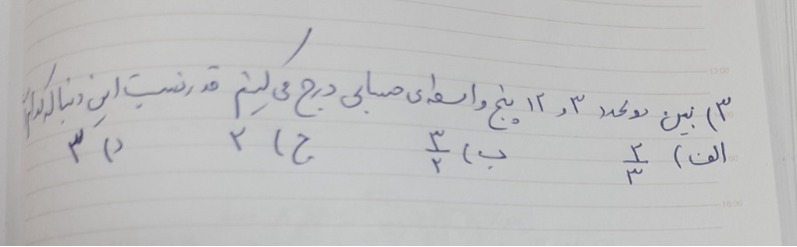 ۳) بین دو عدد ۳ و ۱۲ پنج واسطه‌ی حسابی درج می کنیم قدر نسبت این دنباله کدام
الف) ۲/۳ ب) ۳/۲ ج) ۲ د) ۳